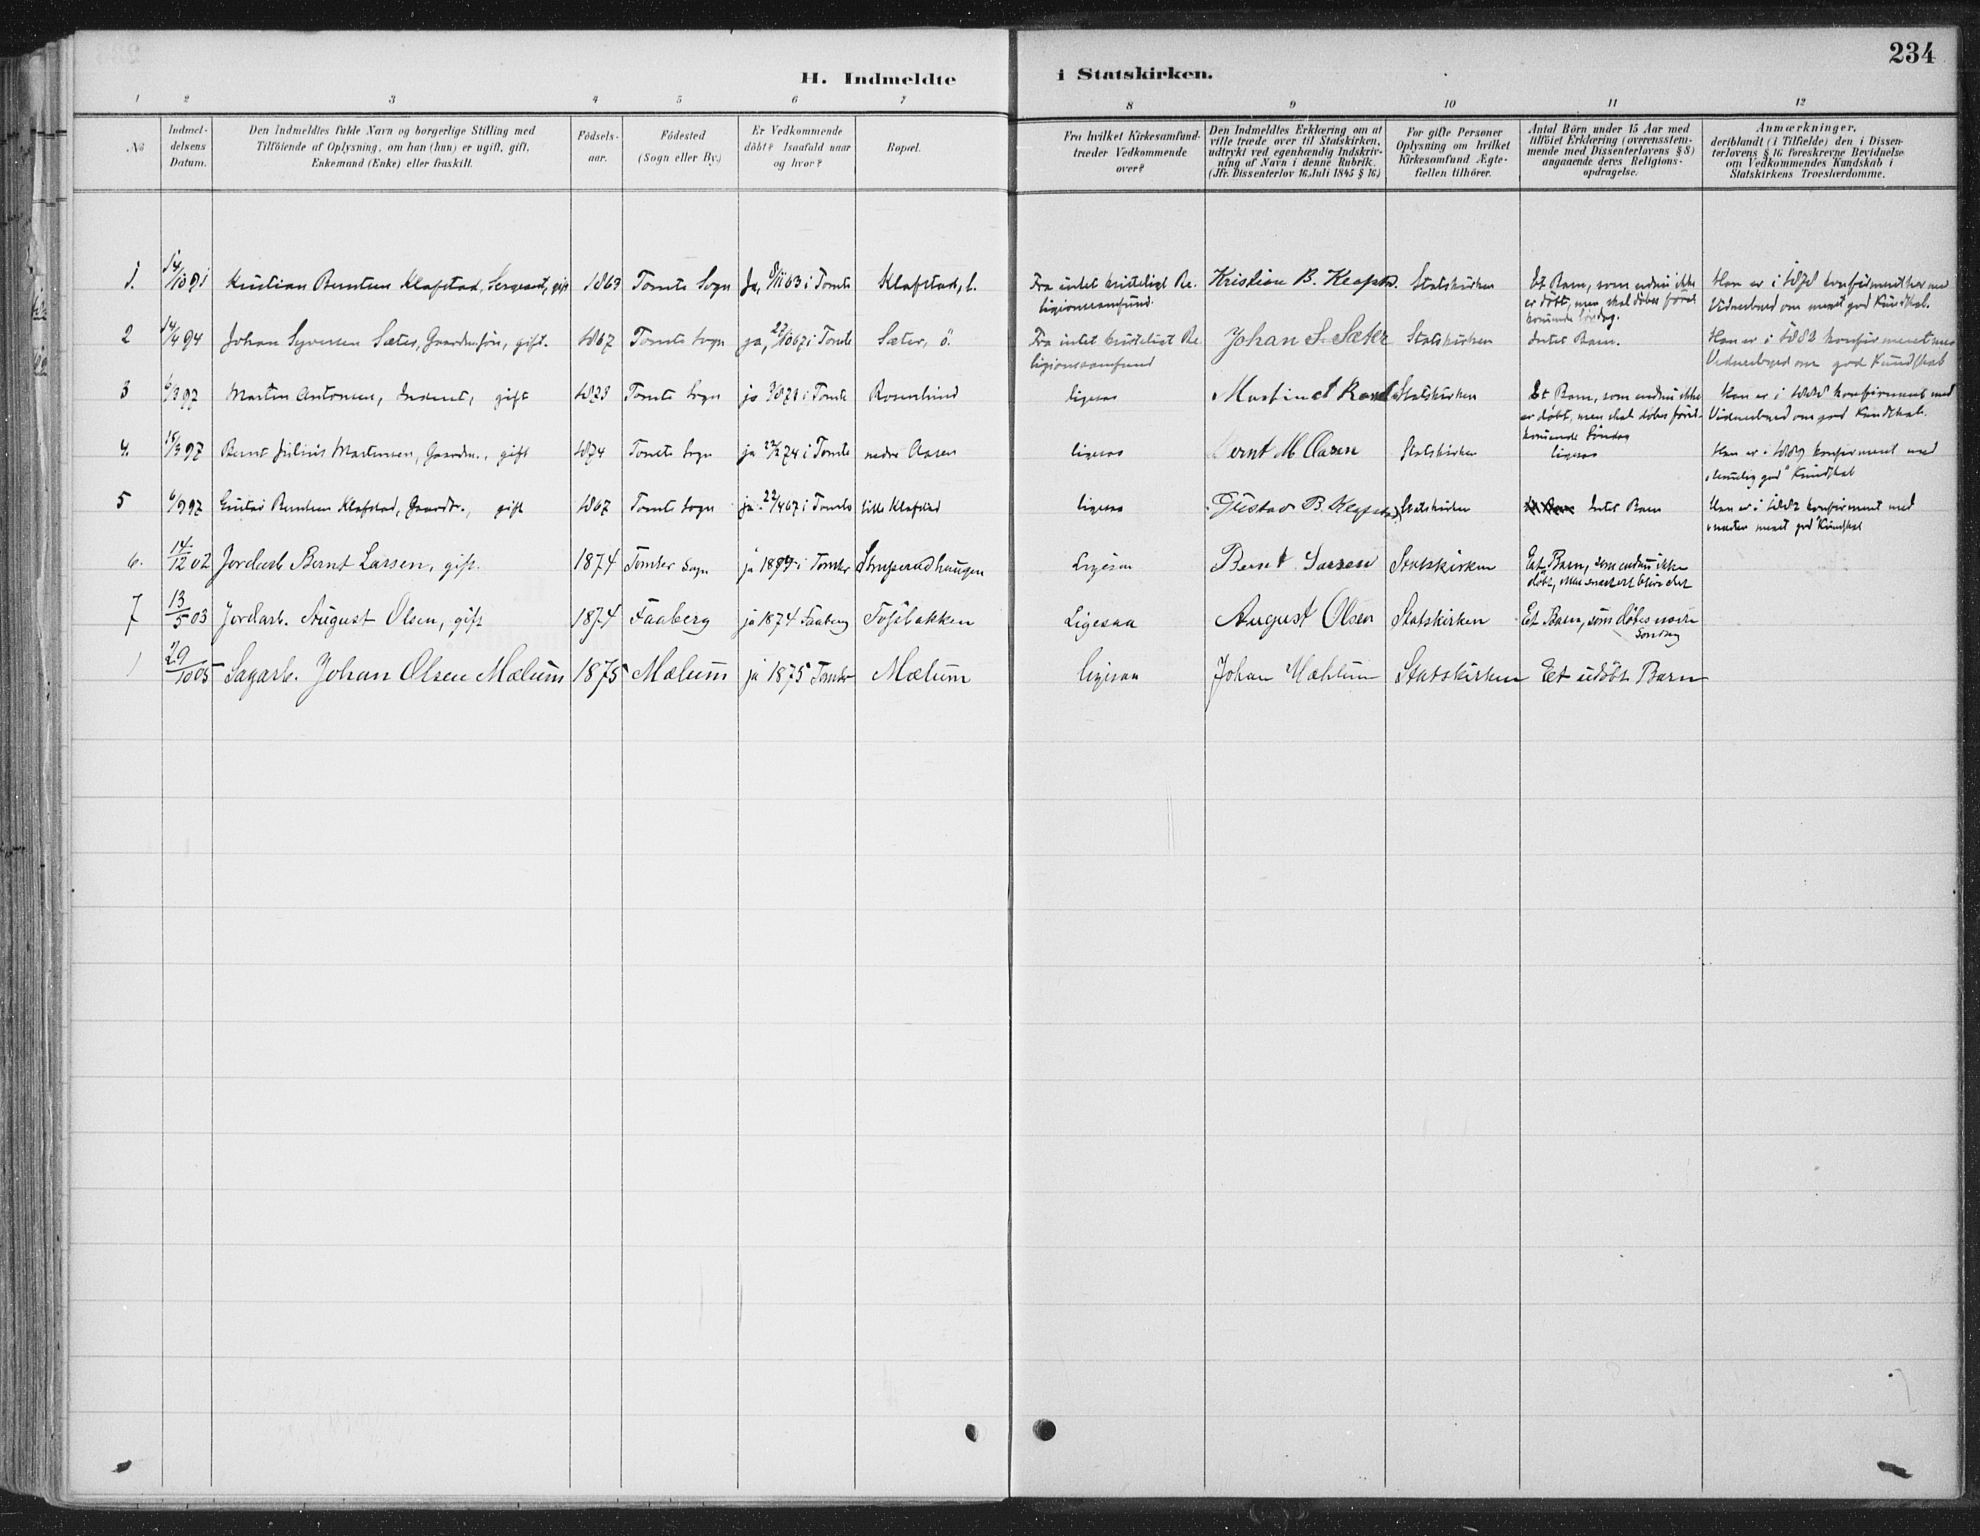 234
H. Indmeldte i Statskirken.
1 2 3 4 5 6 7 8 9 10 11 12
No
Indmel-
delsens
Datum.
Den Indmeldtes fulde Navn og borgerlige Stilling med
Tilföiende af Oplysning, om han (hun) er ugift, gift,
Enkemand (Enke) eller fraskilt.
Födsels-
aar.
Födested
(Sogn eller By.)
Er Vedkommende
döbt? Isaafald naar
og hvor?
Bopæl.
Fra hvilket Kirkesamfund
træder Vedkommende
over?
Den Indmeldtes Erklæring om at
ville træde over til Statskirken,
udtrykt ved egenhændig Indskriv-
ning af Navn i denne Rubrik.
(Jfr. Dissenterlov 16 Juli 1845 § 16)
For gifte Personer
Oplysning om hvilket
Kirkesamfund Ægte-
fællen tilhörer.
Antal Börn under 15 Aar med
tilföiet Erklæring (overensstem-
mende med Dissenterlovens § 8)
angaaende deres Religions-
opdragelse.
Anmærkninger,
deriblandt (i Tilfælde) den i Dissen-
terlovens § 16 foreskrevne Bevidnelse
om Vedkommendes Kundskab i
Statskirkens Troeslærdomme.
1. 14/10 91 Kristian Berntsen Klafstad, Sergeant, gift 1863 Tomte Sogn Ja, 8/11 63 i Tomte Klafstad, l. Fra intet kristeligt Re- Kristian B. Klafstad Statskirken Et Barn, som endnu ikke Han er i konfirmeret med
ligionssamfund. er döbt, men skal döbes först- Vidnesbyrd om meget god Kundskab.
kommende Söndag.
2 14/4 94 Johan Syversen Sæter, Gaardm. sön, gift. 1867 Tomte Sogn ja, 27/10 67 i Tomte Sæter, ö. Fra intet kristeligt Re- Johan S. Sæter Statskirken Intet Barn. Han er i 1882 konfirmeret med
ligionssamfund Vidnesbyrd om god Kundskab
3 6/3 97 Martin Antonsen, Inderst, gift Tomte Sogn ja i Tomte Rosenlund ligesaa Martin A Statskirken Et Barn, som endnu ikke Han er i konfirmeret med
er döbt, men skal döbes först- Vidnesbyrd om god Kundskab.
kommende Söndag
4. 15/3 97 Bernt Julius Martinsen, Gaardm., gift 1874 Tomte Sogn ja 22/2 74 i Tomte nedre Aasen ligesaa Bernt M Aasen Statskirken ligesaa Han er i 1889 konfirmeret med
"temmelig god" Kundskab
5 6/9 97 Gustav Berntsen Klafstad, Gaardbr., gift 1867 Tomte Sogn ja 22/4 67 i Tomte lille Klafstad ligesaa Gustav B. Klafstad Statskirken Intet Barn Han er i 1882 konfirmeret med
meget god" Kundskab
6. 14/12 02 Jordarb. Bernt Larsen, gift. 1874 Tomter Sogn ja 1874 i Tomter Ligesaa Bernt Larsen Statskirken Et Barn, som endnu ikke
döbt, men snarest bliver det
7 13/5 03 Jordarb. August Olsen, gift 1874 Faaberg ja 1874 Faaberg Ligesaa August Olsen Statskirken Et Barn, som döbes næste
Söndag
1 29/10 05 Sagarb. Johan Olsen Mælum 1875 Mælum ja 1875 Tomter Mælum ligesaa Johan Mæhlum Statskirken Et udöbt Barn